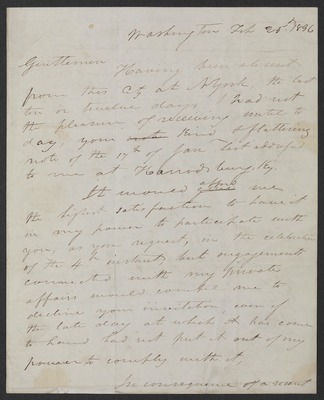 Washington Feb 25th 1836
Gentlemen
Having been absent
from this City at N York the last
ten or twelve days I had not
the pleasure of receiving until to
day your kind & flattering
note of the 17th of Jan last addressed
to me at Harrodsburg Ky.
It would afford me
the highest satisfaction to have it
in my power to participate with
you, as you request, in the celebration
of the 4th instant, but engagements
connected with my private
affairs would compel me to
decline your invitation even if
the late day at which it has come
to hand had not put it out of my
power to comply with it.
In consequence of a recent